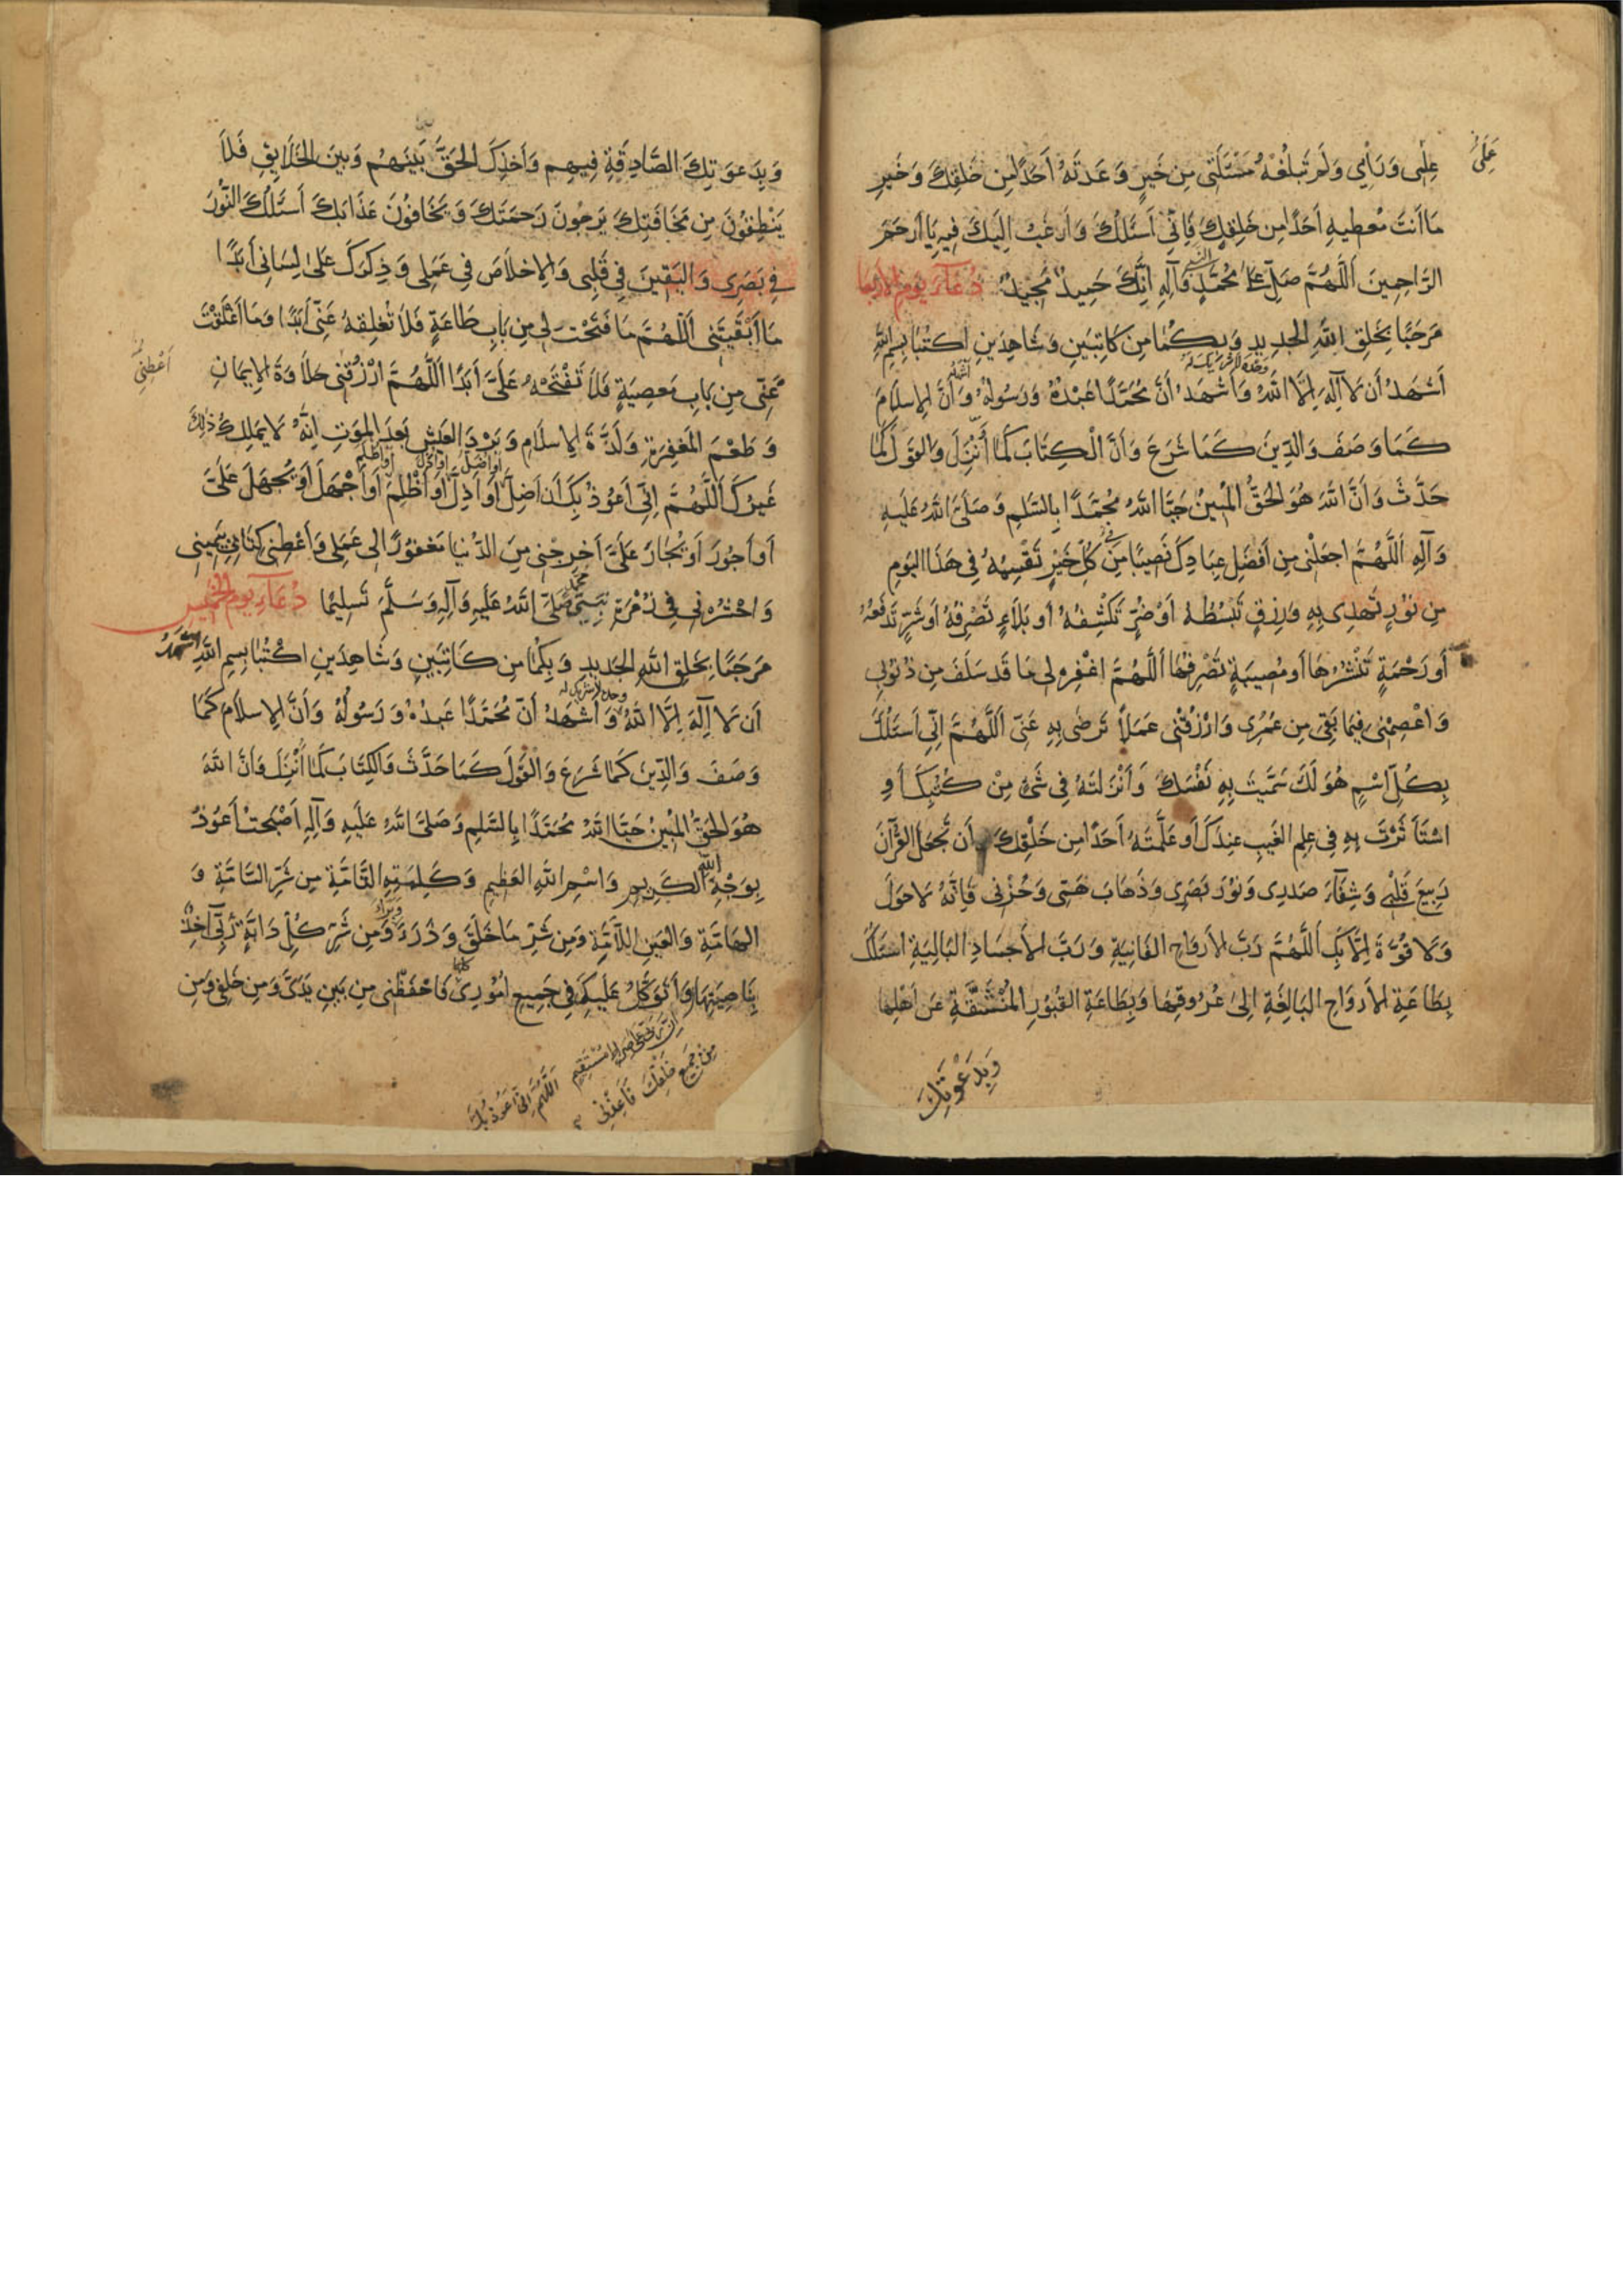 عِلْمِى وَرَأْيِي وَلَمْ تَبْلُغْهُ مَسْئَلَتِى مِن خَيرٍ وَعَدتَهُ أَحَدًا مِن خَلقِكَ وَخَيرٍ
مَا أَنتَ مُعطِيهِ أَحَدًا مِن خَلقِكَ فَاِنِّي أَسئَلُكَ وَأَرغَبُ اِلَيكَ فِيهِ يَا أَرحَمَ
الرَّاحِمِينَ اَللَّهُمَّ صَلِّ عَلَى مُحَمَّدٍ وَآلِهِ اِنَّكَ حَمِيدٌ مَجِيدٌ دُعَاءُ يَومِ الاَربعا
مَرحَبًا بِخَلقِ اللهِ الجَدِيدِ وَبِكُمَا مِن كَاتِبَينِ وَشَاهِدَينِ اُكتُبَا بِسمِ اللهِ
وحده لا شريك له
أَشْهَدُ أَن لاَ اِلَهَ اِلَّا اللهُ وَأَشهَدُ أَنَّ مُحَمَّدًا عَبْدُهُ وَرَسُولُهُ وَأَنَّ الاِسلاَمَ
كَمَا وَصَفَ وَالدِّينَ كَمَا شَرَعَ وَأَنَّ الْكِتَابَ كَمَا أُنْزِلَ وَالقَولَ كَمَا
حَدَّثَ وَأَنَّ اللهَ هُوَ الحَقُّ المُبِينُ حَيَّا اللهُ مُحَمَّدًا بِالسَّلاَمِ وَصَلَّى اللهُ عَلَيهِ
وَآلِهِ اَللَّهُمَّ اجعَلْنِى مِن أَفضَلِ عِبَادِكَ نَصِيبًا مِن كُلِّ خَيْرٍ تَقْسِمُهُ فِى هَذَا اليَومِ
مِن نُورٍ تَهدِى بِهِ وَرِزقٍ تَبْسُطُهُ أَوْ ضُرٍّ تَكْشِفُهُ أَو بَلاَءٍ تَصْرِفُهُ أَو شَرٍّ تَدفَعُهُ
أَو رَحْمَةٍ تَنْشُرُهَا أَو مُصِيبَةٍ تَصْرِفُهَا اَللَّهُمَّ اغْفِر لِى مَا قَد سَلَفَ مِن ذُنُوبِي
وَاعْصِمْنِى فِيمَا بَقِىَ مِن عُمُرِى وَارْزُقْنِى عَمَلاً تَرضَى بِهِ عَنِّى اَللَّهُمَّ اِنِّي أَسئَلُكَ
بِكُلِّ اسْمٍ هُوَ لَكَ سَمَّيتَ بِهِ نَفْسَكَ وَأَنْزَلتَهُ فِى شَىْءٍ مِنْ كُتُبِكَ أَوِ
اسْتَأثَرْتَ بِهِ فِى عِلمِ الغَيبِ عِندَكَ أَو عَلَّمتَهُ أَحَدًا مِن خَلْقِكَ أَن تَجْعَلَ القُرآنَ
رَبِيعَ قَلْبِي وَشِفَآءَ صَدرِى وَنُورَ بَصَرِى وَذَهَابَ هَمِّى وَحُزْنِى فَاِنَّهُ لاَ حَولَ
وَلاَ قُوَّةَ اِلَّا بِكَ اَللَّهُمَّ رَبَّ الاَروَاحِ الفَانِيَةِ وَرَبَّ الاَجسَادِ البَالِيَةِ اَسئَلُكَ
بِطَاعَةِ الاَروَاحِ البَالِغَةِ اِلىٰ عُرُوقِهَا وَبِطَاعَةِ القُبُورِ المُنْشَقَّةِ عَن أَهْلِهَا
وَبِدَعْوَتِكَ
وَبِدَعوَتِكَ الصَّادِقَةِ فِيهِم وَأَخذِكَ الحَقَّ بَينَهُم وَبَينَ الخَلاَيِقِ فَلاَ
يَنْطِقُونَ مِن مَخَافَتِكَ يَرجُونَ رَحمَتَكَ وَيَخَافُونَ عَذَابَكَ أَسئَلُكَ النُّورَ
فِى بَصَرِى وَاليَقِينَ فِى قَلبِى وَالاِخلاَصَ فِى عَمَلِى وَذِكرَكَ عَلىٰ لِسَانِى أَبَدًا
مَا أَبْقَيتَنِى اَللَّهُمَّ مَا فَتَحْتَ لِى مِن بَابِ طَاعَةٍ فَلاَ تُغلِقهُ عَنِّى أَبَدًا وَمَا أَغلَقْتَ
أَعْطِنِى
عَنِّى مِن بَابِ مَعصِيَةٍ فَلاَ تَفْتَحْهُ عَلَىَّ أَبَدًا اَللَّهُمَّ ارْزُقْنِى حَلاَوَةَ الاِيمَانِ
وَطَعْمَ المَغفِرَةِ وَلَذَّةَ الاِسلاَمِ وَبَرْدَ العَيشِ بَعدَ المَوتِ اِنَّهُ لاَ يَملِكُ ذٰلِكَ
غَيرُكَ اَللَّهُمَّ اِنِّى أَعُوذُ بِكَ أَن أَضِلَّ أَو أَذِلَّ أَو أَظْلِمَ أَو أَجْهَلَ أَو يُجهَلَ عَلَىَّ
أَو أَجُورَ أَو يُجَارَ عَلَىَّ أَخرِجْنِى مِنَ الدُّنيَا مَغفُورًا لِى عَمَلِى وَأَعْطِنِى كِتَابِى بِيَمِينِى
وَاحْشُرْنِى فِى زُمْرَةِ نَبِيِّي مُحَمَّد صَلَّى اللهُ عَلَيهِ وَآلِهِ وَسَلَّمَ تَسلِيمًا دُعَاءُ يَومِ الخميس
مَرحَبًا بِخَلقِ اللهِ الجَدِيدِ وَبِكُمَا مِن كَاتِبَينِ وَشَاهِدَينِ اكْتُبَا بِسمِ اللهِ أَشْهَدُ
وحده لا شريك له
أَن لاَ اِلَهَ اِلَّا اللهُ وَأَشْهَدُ أَنَّ مُحَمَّدًا عَبدُهُ وَرَسُولُهُ وَأَنَّ الاِسلاَمَ كَمَا
وَصَفَ وَالدِّينَ كَمَا شَرَعَ وَالقَولَ كَمَا حَدَّثَ وَالكِتَابَ كَمَا أُنْزِلَ وَأَنَّ اللهَ
هُوَ الحَقُّ المُبِينُ حَيَّا اللهُ مُحَمَّدًا بِالسَّلاَمِ وَصَلَّى اللهُ عَلَيهِ وَآلِهِ أَصْبَحتُ أَعُوذُ
بِوَجْهِ اللهِ الكَرِيمِ وَاسْمِ اللهِ العَظِيمِ وَكَلِمَتِهِ التَّامَّةِ مِن شَرِّ السَّامَّةِ وَ
الهَامَّةِ وَالعَينِ اللَّامَّةِ وَمِن شَرِّ مَا خَلَقَ وَذَرَءَ وَمِن شَرِّ كُلِّ دَابَّةٍ رَبِّى آخِذٌ
بِنَاصِيَتِهَا وَأَتَوَكَّلُ عَلَيكَ فِى جَمِيعِ اُمُورِى فَاحْفَظْنِى مِن بَينِ يَدَىَّ وَمِن خَلفِى وَمِن
اِنَّ رَبِّي عَلَى صِرَاطٍ مُسْتَقِيمٍ اَللَّهُمَّ اِنِّى أَعُوذُ بِكَ
مِن جَمِيعِ خَلْقِكَ فَأَعِذْنِى